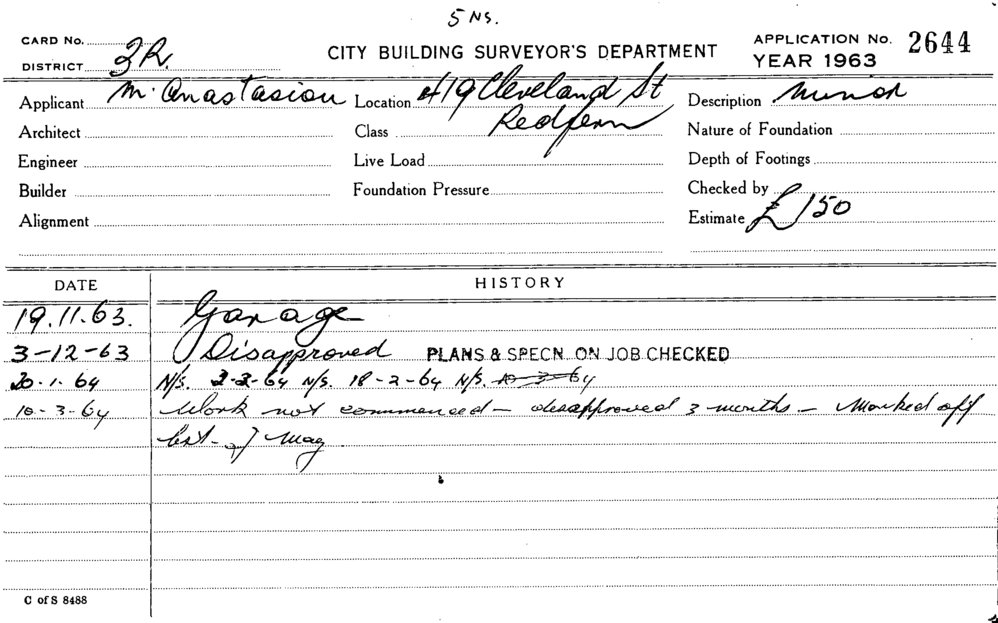 5 NS.
CARD No. CITY BUILDING SURVEYOR'S DEPARTMENT APPLICATION No. 2644
DISTRICT 3R. YEAR 1963
Applicant M. Anastasiou Location 419 Cleveland St Description Minor
Architect Class Redfern Nature of Foundation
Engineer Live Load Depth of Footings
Builder Foundation Pressure Checked by
Alignment Estimate £150
DATE HISTORY
19.11.63. Garage
3-12-63 Disapproved PLANS & SPECN. ON JOB CHECKED
20-1-64 N/S. 3-2-64 N/S. 18-2-64 N/S. 10-3-64
10-3-64 Work not commenced - disapproved 3 months - Marked off